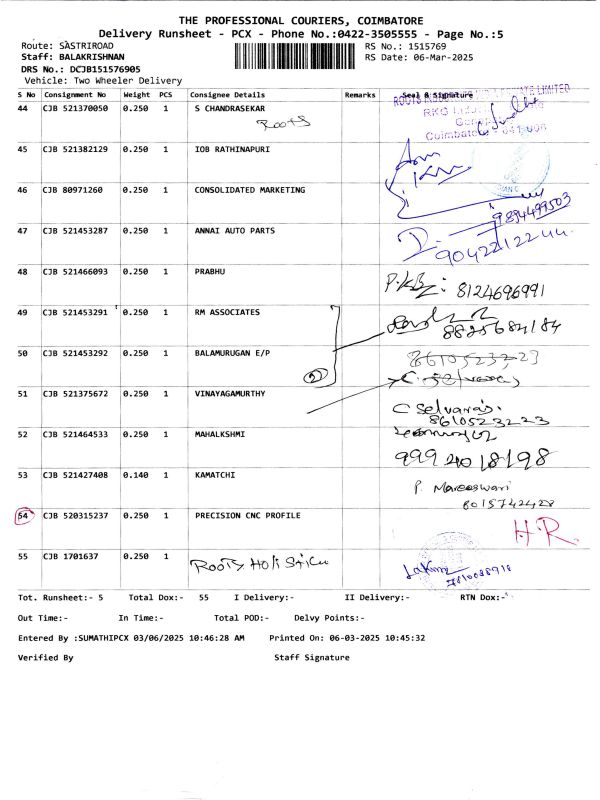 THE PROFESSIONAL COURIERS, COIMBATORE
Delivery Runsheet - PCX - Phone No.:0422-3505555 - Page No.:5
Route: SASTRIROAD
RS No.: 1515769
Staff: BALAKRISHNAN
RS Date: 06-Mar-2025
DRS No.: DCJB151576905
Vehicle: Two Wheeler Delivery
S No Consignment No Weight PCS Consignee Details Remarks Seal & Signature
44 CJB 521370050 0.250 1 S CHANDRASEKAR
Roots
45 CJB 521382129 0.250 1 IOB RATHINAPURI
46 CJB 80971260 0.250 1 CONSOLIDATED MARKETING
9894499503
47 CJB 521453287 0.250 1 ANNAI AUTO PARTS
9042212244
48 CJB 521466093 0.250 1 PRABHU
8124696991
49 CJB 521453291 0.250 1 RM ASSOCIATES
8825684184
50 CJB 521453292 0.250 1 BALAMURUGAN E/P
8610523223
2
51 CJB 521375672 0.250 1 VINAYAGAMURTHY
C Selvaraj.
8610523223
52 CJB 521464533 0.250 1 MAHALKSHMI
999 40 18198
53 CJB 521427408 0.140 1 KAMATCHI
P. Mareeswari
8015742428
54 CJB 520315237 0.250 1 PRECISION CNC PROFILE
H.R.
55 CJB 1701637 0.250 1
Tot. Runsheet:- 5 Total Dox:- 55 I Delivery:- II Delivery:- RTN Dox:-
Out Time:- In Time:- Total POD:- Delvy Points:-
Entered By :SUMATHIPCX 03/06/2025 10:46:28 AM Printed On: 06-03-2025 10:45:32
Verified By Staff Signature